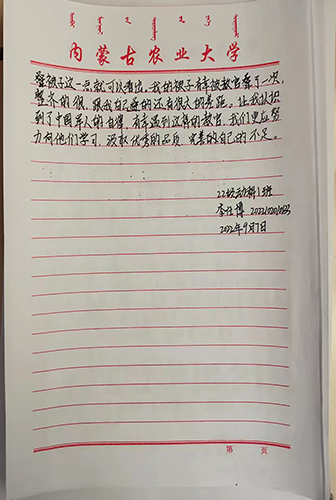 内蒙古农业大学
叠被子这一点就可以看出,我的被子有幸被教官叠了一次,
整齐的很,跟我自己叠的还有很大的差距,让我认识
到了中国军人的自律,有幸遇到这样的教官,我们更应努
力向他们学习,汲取优秀的品质,完善自己的不足。
22级动科1班
李仕博
2022年9月7日
第 页